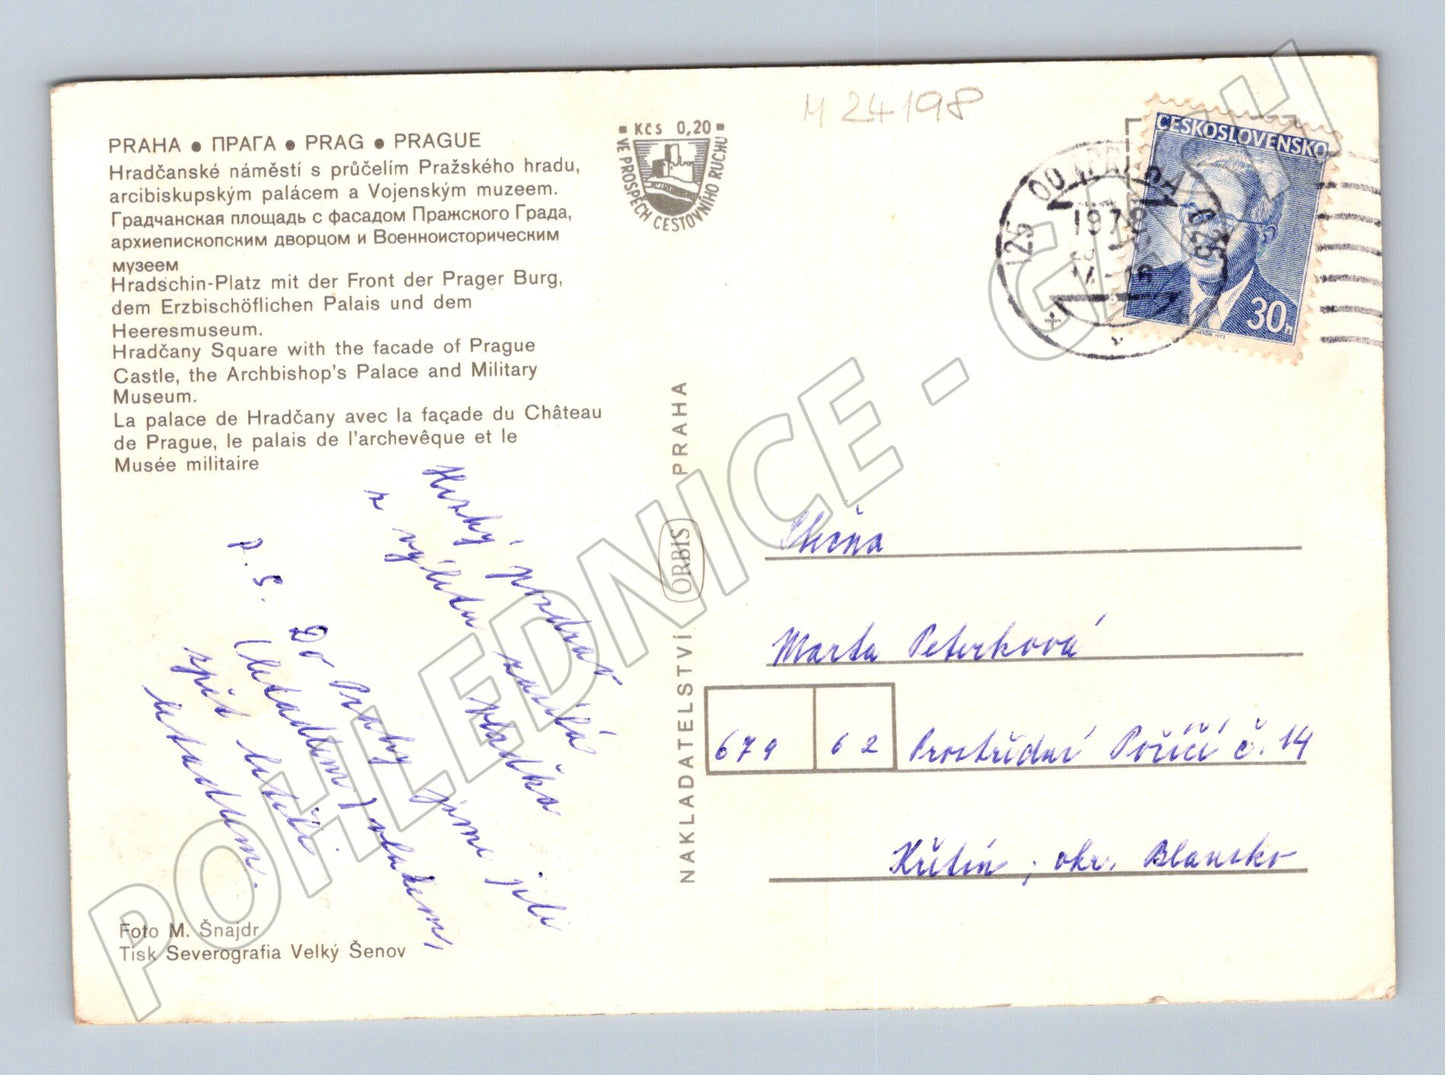 PRAHA ● ПРАГА ● PRAG ● PRAGUE
Hradčanské náměstí s průčelím Pražského hradu,
arcibiskupským palácem a Vojenským muzeem.
Градчанская площадь с фасадом Пражского Града,
архиепископским дворцом и Военноисторическим
музеем
Hradschin-Platz mit der Front der Prager Burg,
dem Erzbischöflichen Palais und dem
Heeresmuseum.
Hradčany Square with the facade of Prague
Castle, the Archbishop's Palace and Military
Museum.
La palace de Hradčany avec la façade du Château
de Prague, le palais de l'archevêque et le
Musée militaire
KČS 0,20
VE PROSPĚCH CESTOVNÍHO RUCHU
M 24198
ČESKOSLOVENSKO
30h
1978
Hezký pozdrav
z výletu zasílá
P.S. Do Prahy jsme jeli
(letadlem)
zpět letěli
letadlem.
NAKLADATELSTVÍ ORBIS PRAHA
Slečna
Marta Peterková
679 62 Prostřední Poříčí č. 14
Křtín, okr. Blansko
Foto M. Šnajdr
Tisk Severografia Velký Šenov
POHLEDNICE - GALH